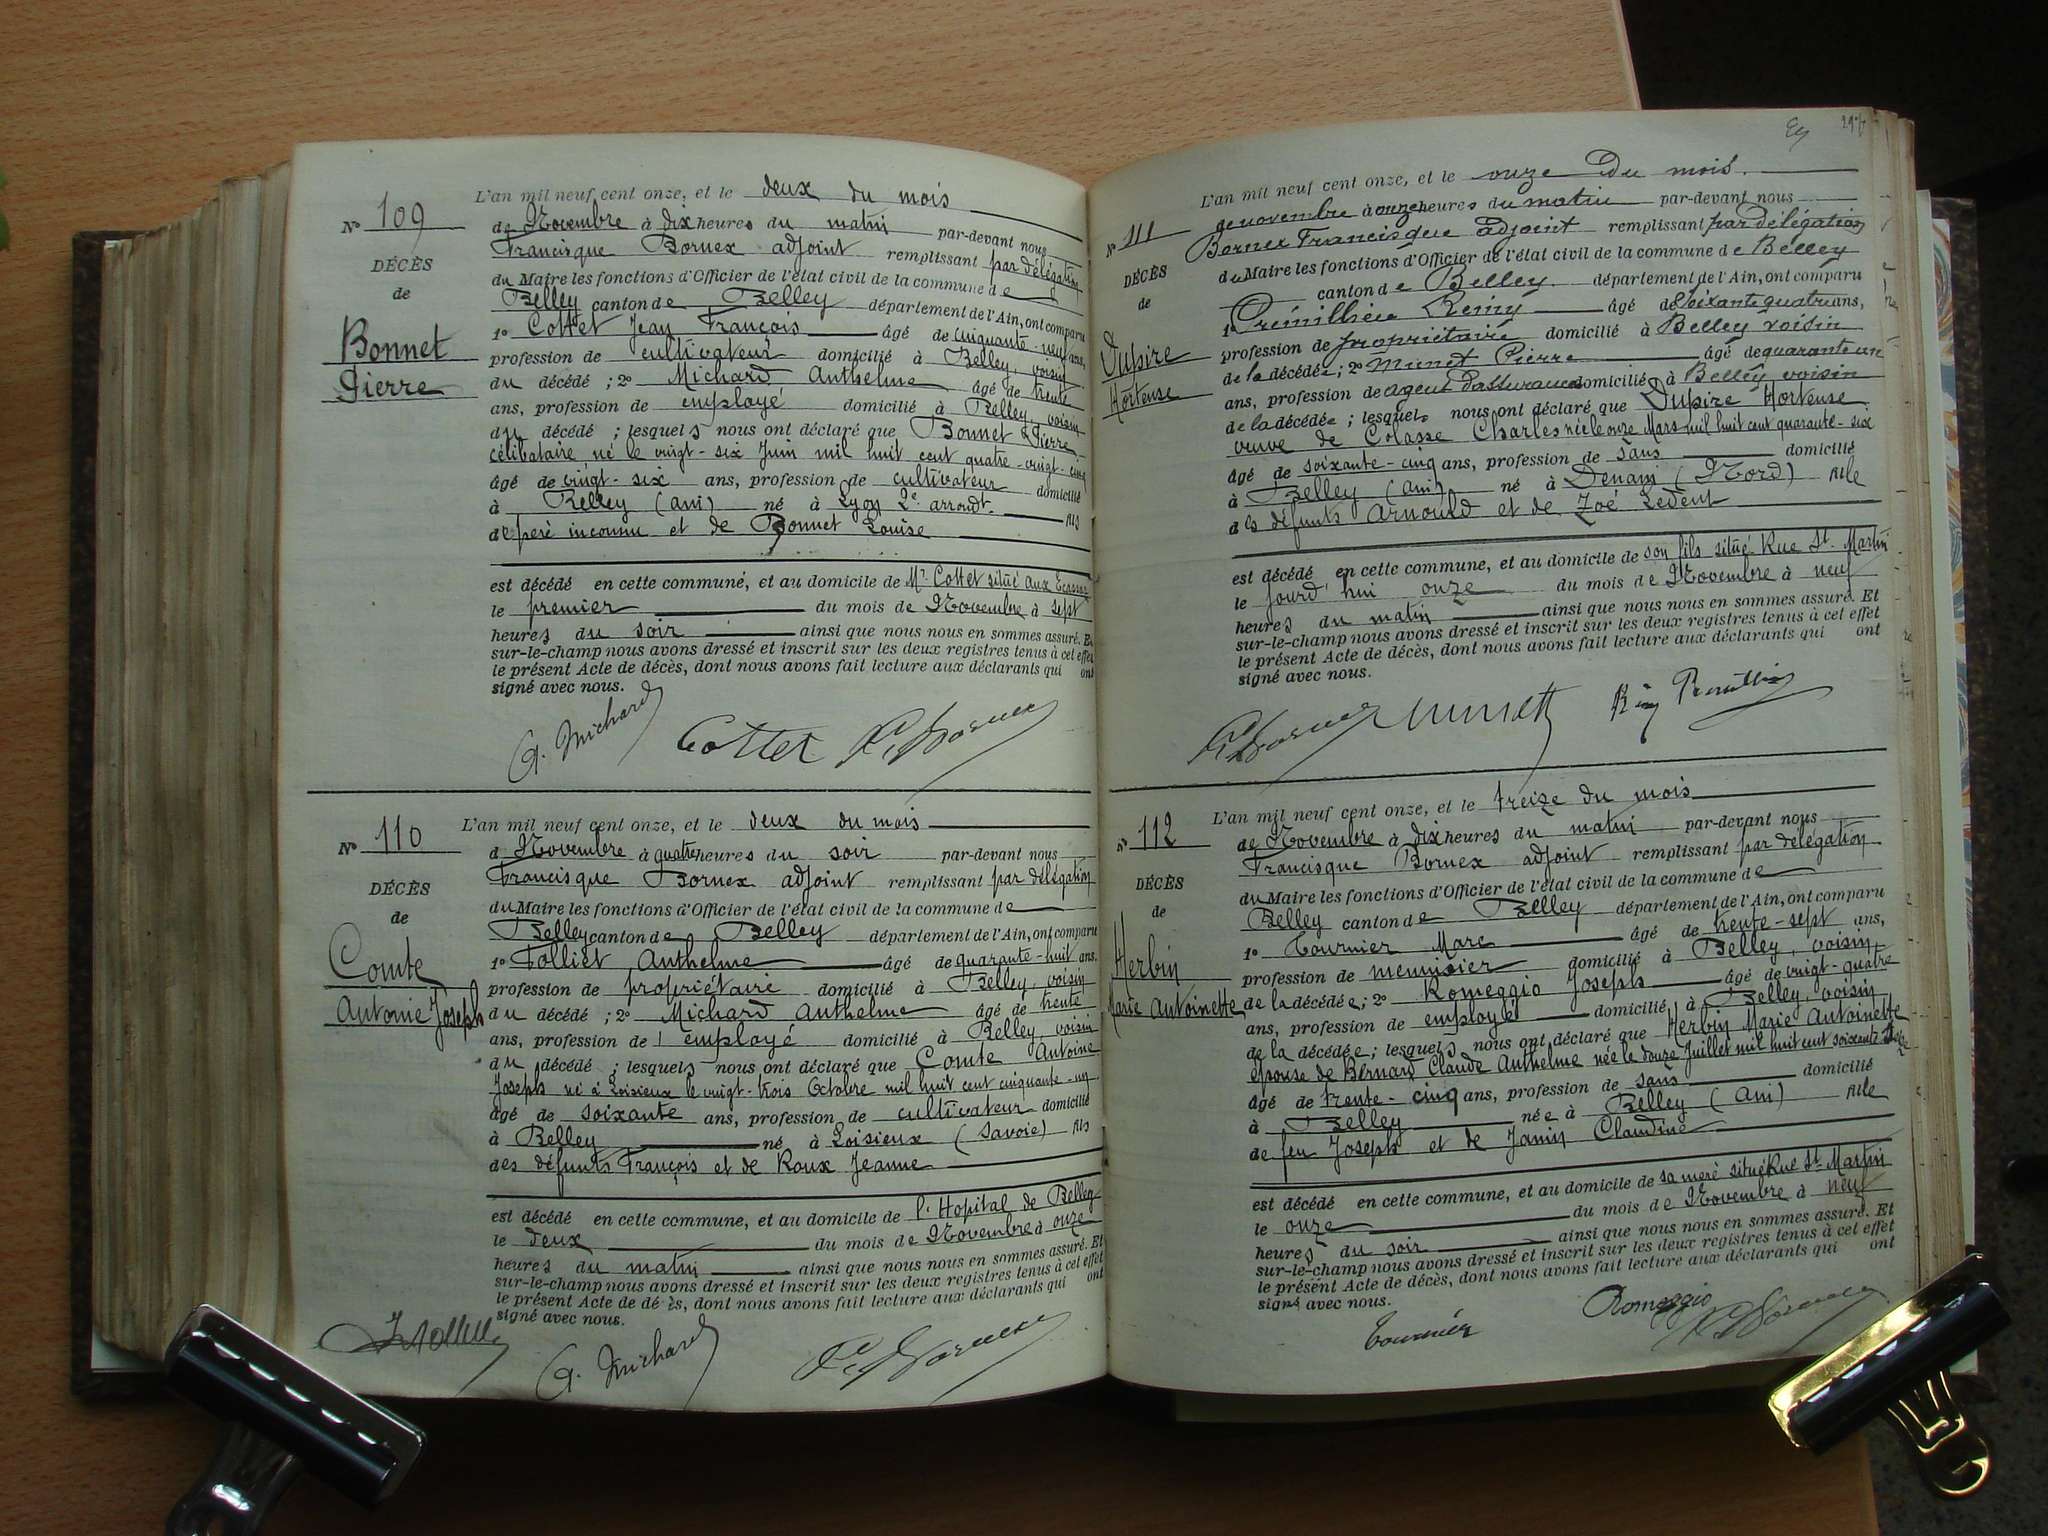 Nº 109
DÉCÈS
de
Bonnet
Pierre
L'an mil neuf cent onze, et le deux du mois
de Novembre à dix heures du matin par-devant nous
Francisque Bornex adjoint remplissant par délégation
du Maire les fonctions d'Officier de l'état civil de la commune de
Belley canton de Belley département de l'Ain, ont comparu
1º Cottet Jean François âgé de cinquante-neuf ans,
profession de cultivateur domicilié à Belley, voisin
du décédé ; 2º Michard Anthelme âgé de trente
ans, profession de employé domicilié à Belley, voisin
du décédé ; lesquels nous ont déclaré que Bonnet Pierre
célibataire né le vingt-six Juin mil huit cent quatre-vingt-cinq
âgé de vingt-six ans, profession de cultivateur domicilié
à Belley (Ain) né à Lyon 2e arrondt. fils
de père inconnu et de Bonnet Louise
est décédé en cette commune, et au domicile de Mr. Cottet situé aux
le premier du mois de Novembre à sept
heures du soir ainsi que nous nous en sommes assuré. Et
sur-le-champ nous avons dressé et inscrit sur les deux registres tenus à cet effet
le présent Acte de décès, dont nous avons fait lecture aux déclarants qui ont
signé avec nous.
A. Michard Cottet F. Bornex
Nº 110
DÉCÈS
de
Comte
Antoine Joseph
L'an mil neuf cent onze, et le deux du mois
d Novembre à quatre heures du soir par-devant nous
Francisque Bornex adjoint remplissant par délégation
du Maire les fonctions d'Officier de l'état civil de la commune de
Belley canton de Belley département de l'Ain, ont comparu
1º Folliet Anthelme âgé de quarante-huit ans,
profession de propriétaire domicilié à Belley, voisin
du décédé ; 2º Michard Anthelme âgé de trente
ans, profession de employé domicilié à Belley, voisin
du décédé ; lesquels nous ont déclaré que Comte Antoine
Joseph né à Loisieux le vingt-trois Octobre mil huit cent cinquante-un
âgé de soixante ans, profession de cultivateur domicilié
à Belley né à Loisieux (Savoie) fils
des défunts François et de Roux Jeanne
est décédé en cette commune, et au domicile de l'Hopital de Belley
le deux du mois de Novembre à onze
heures du matin ainsi que nous nous en sommes assuré. Et
sur-le-champ nous avons dressé et inscrit sur les deux registres tenus à cet effet
le présent Acte de décès, dont nous avons fait lecture aux déclarants qui ont
signé avec nous.
A. Michard F. Bornex
Nº 111
DÉCÈS
de
Dupire
Hortense
L'an mil neuf cent onze, et le onze du mois
de novembre à onze heures du matin par-devant nous
Bornex Francisque adjoint remplissant par délégation
du Maire les fonctions d'Officier de l'état civil de la commune de Belley
canton de Belley département de l'Ain, ont comparu
1º Prémillieu Rémy âgé de soixante quatre ans,
profession de propriétaire domicilié à Belley voisin
de la décédée ; 2º Munet Pierre âgé de quarante un
ans, profession de agent d'assurances domicilié à Belley voisin
de la décédée ; lesquels nous ont déclaré que Dupire Hortense
veuve de Colasse Charles née le onze Mars mil huit cent quarante-six
âgé de soixante-cinq ans, profession de sans domicilié
à Belley (Ain) né à Denain (Nord) fille
des défunts Arnould et de Zoé Ledent
est décédé en cette commune, et au domicile de son fils situé Rue St. Martin
le jourd'hui onze du mois de Novembre à neuf
heures du matin ainsi que nous nous en sommes assuré. Et
sur-le-champ nous avons dressé et inscrit sur les deux registres tenus à cet effet
le présent Acte de décès, dont nous avons fait lecture aux déclarants qui ont
signé avec nous.
F. Bornex Munet
Nº 112
DÉCÈS
de
Herbin
Marie Antoinette
L'an mil neuf cent onze, et le treize du mois
de Novembre à dix heures du matin par-devant nous
Francisque Bornex adjoint remplissant par délégation
du Maire les fonctions d'Officier de l'état civil de la commune de
Belley canton de Belley département de l'Ain, ont comparu
1º Tournier Marc âgé de trente-sept ans,
profession de menuisier domicilié à Belley, voisin
de la décédée ; 2º Romeggio Joseph âgé de vingt-quatre
ans, profession de employé domicilié à Belley, voisin
de la décédée ; lesquels nous ont déclaré que Herbin Marie Antoinette
épouse de Bernard Claude Anthelme née le douze Juillet mil huit cent soixante
âgé de trente-cinq ans, profession de sans domicilié
à Belley née à Belley (Ain) fille
de feu Joseph et de Janin Claudine
est décédé en cette commune, et au domicile de sa mère située Rue St. Martin
le onze du mois de Novembre à neuf
heures du soir ainsi que nous nous en sommes assuré. Et
sur-le-champ nous avons dressé et inscrit sur les deux registres tenus à cet effet
le présent Acte de décès, dont nous avons fait lecture aux déclarants qui ont
signé avec nous.
Tournier Romeggio F. Bornex